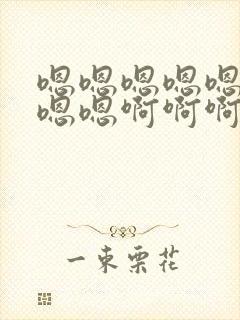 嗯嗯嗯嗯嗯
嗯嗯啊啊啊
一束栗花